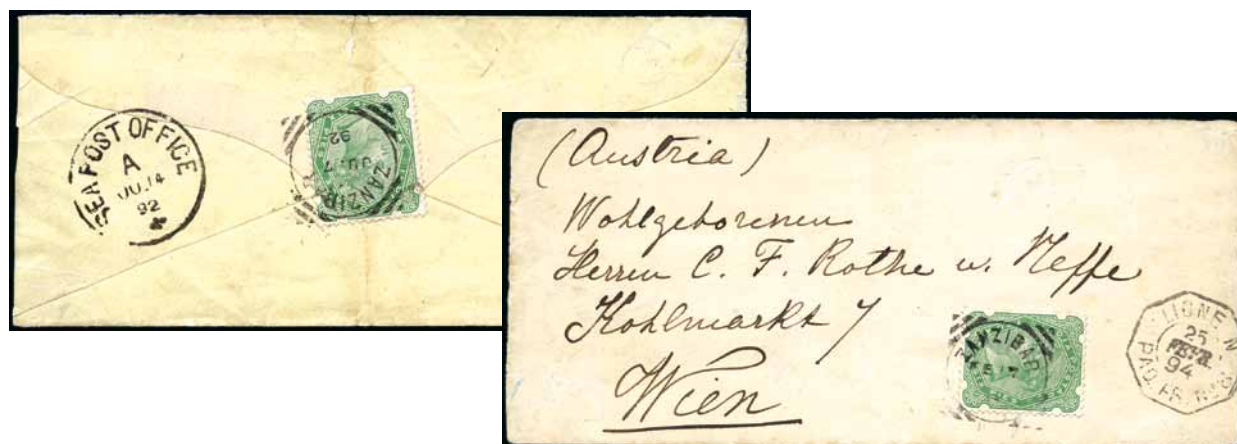 SEA POST OFFICE
A
JU.14
92
ZANZIBAR
JU 7
92
(Austria)
Wohlgeborenen
Herren C. F. Rothe u. Neffe
Kohlmarkt 7
Wien
ZANZIBAR
FE
LIGNE N
25
FEVR.
94
PAQ. FR.